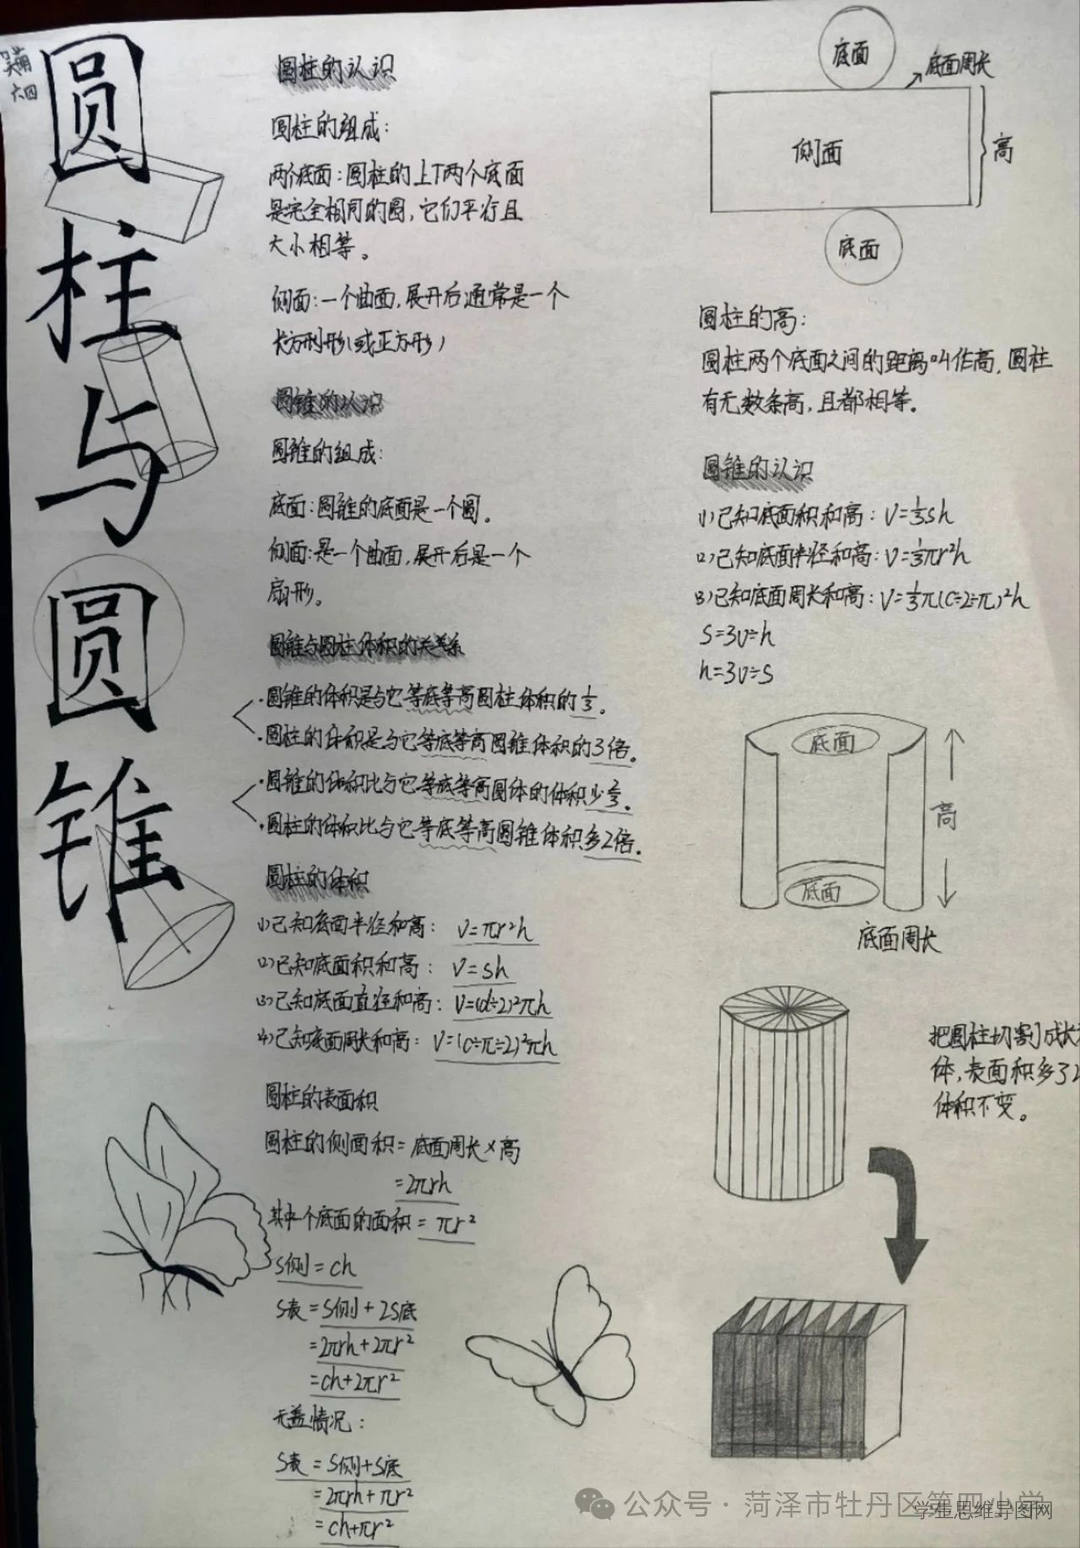 六四
圆柱与圆锥
圆柱的认识
圆柱的组成:
两个底面:圆柱的上下两个底面
是完全相同的圆,它们平行且
大小相等。
侧面:一个曲面,展开后通常是一个
长方形(或正方形)
圆锥的认识
圆锥的组成:
底面:圆锥的底面是一个圆。
侧面:是一个曲面,展开后是一个
扇形。
圆锥与圆柱体积的关系
·圆锥的体积是与它等底等高圆柱体积的1/3。
·圆柱的体积是与它等底等高圆锥体积的3倍。
·圆锥的体积比与它等底等高圆体的体积少2/3。
·圆柱的体积比与它等底等高圆锥体积多2倍。
圆柱的体积
(1)已知底面半径和高: V=πr²h
(2)已知底面积和高: V=sh
(3)已知底面直径和高: V=(d÷2)²πh
(4)已知底面周长和高: V=(c÷π÷2)²πh
圆柱的表面积
圆柱的侧面积=底面周长×高
=2πrh
其中个底面的面积=πr²
S侧=ch
S表=S侧+2S底
=2πrh+2πr²
=ch+2πr²
无盖情况:
S表=S侧+S底
=2πrh+πr²
=ch+πr²
底面
底面周长
侧面
高
底面
圆柱的高:
圆柱两个底面之间的距离叫作高,圆柱
有无数条高,且都相等。
圆锥的认识
(1)已知底面积和高:V=1/3sh
(2)已知底面半径和高:V=1/3πr²h
(3)已知底面周长和高:V=1/3π(C÷2÷π)²h
S=3V÷h
h=3V÷S
底面
高
底面
底面周长
把圆柱切割成长
体,表面积多了2
体积不变。
公众号·菏泽市牡丹区第四小学
学生思维导图网